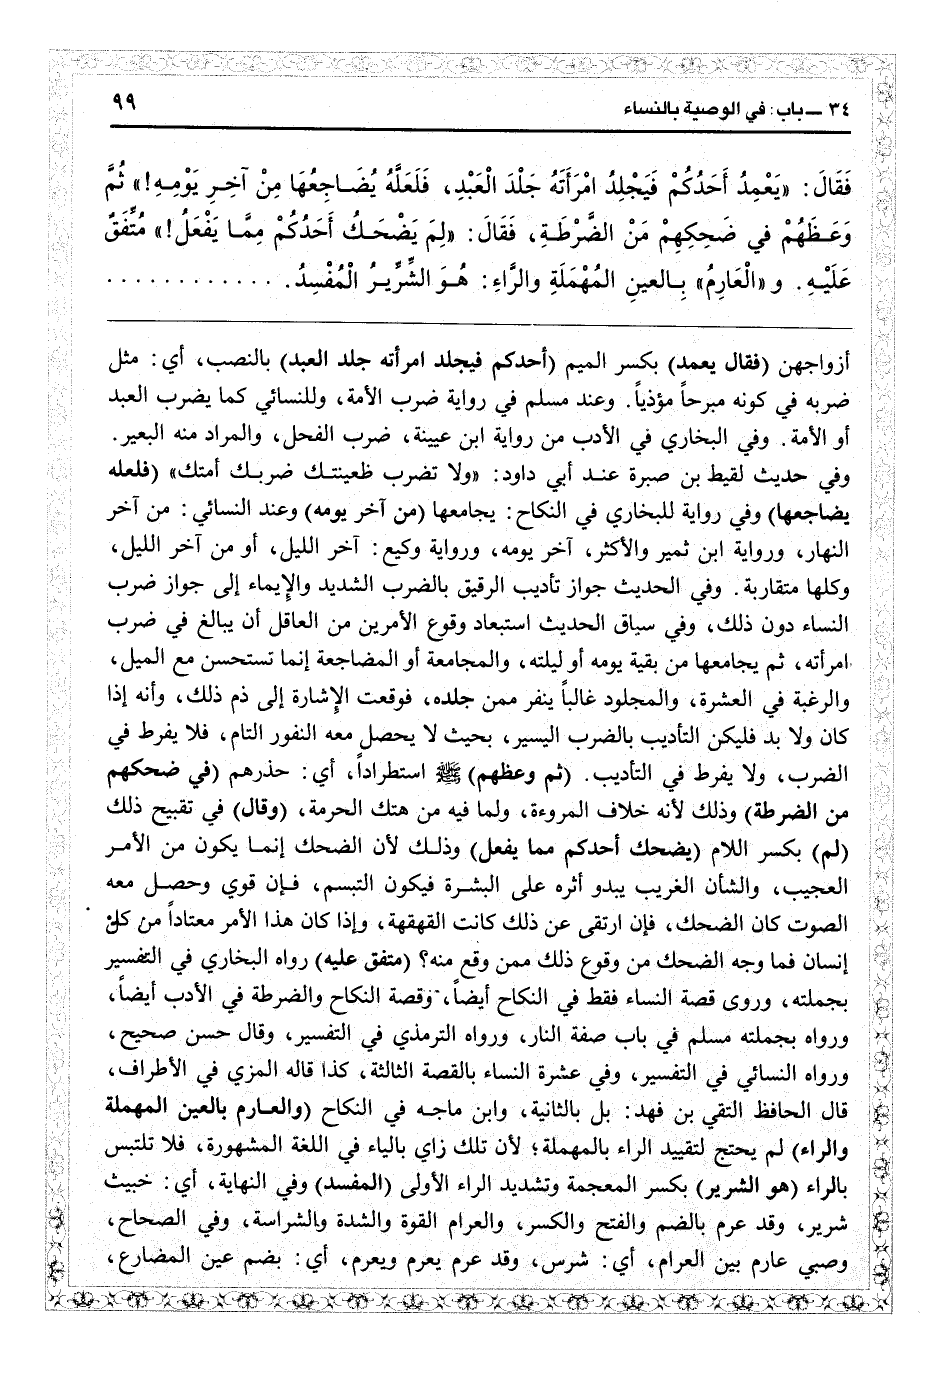 ٣٤ ــ باب: في الوصية بالنساء ٩٩
فَقَالَ: «يَعْمِدُ أَحَدُكُمْ فَيَجْلِدُ امْرَأَتَهُ جَلْدَ الْعَبْدِ، فَلَعَلَّهُ يُضَاجِعُهَا مِنْ آخِرِ يَوْمِهِ!» ثُمَّ
وَعَظَهُمْ فِي ضَحِكِهِمْ مَنَ الضَّرْطَةِ، فَقَالَ: «لِمَ يَضْحَكُ أَحَدُكُمْ مِمَّا يَفْعَلُ!» مُتَّفَقٌ
عَلَيْهِ. و «الْعَارِمُ» بِالعينِ الْمُهْمَلَةِ والرَّاءِ: هُوَ الشِّرِّيرُ الْمُفْسِدُ. . . . . . . . . . . . .
أزواجهن (فقال يعمد) بكسر الميم (أحدكم فيجلد امرأته جلد العبد) بالنصب، أي: مثل
ضربه في كونه مبرحاً مؤذياً. وعند مسلم في رواية ضرب الأمة، وللنسائي كما يضرب العبد
أو الأمة. وفي البخاري في الأدب من رواية ابن عيينة، ضرب الفحل، والمراد منه البعير.
وفي حديث لقيط بن صبرة عند أبي داود: «ولا تضرب ظعينتك ضربك أمتك» (فلعله
يضاجعها) وفي رواية للبخاري في النكاح: يجامعها (من آخر يومه) وعند النسائي: من آخر
النهار، ورواية ابن ثمير والأكثر، آخر يومه، ورواية وكيع: آخر الليل، أو من آخر الليل،
وكلها متقاربة. وفي الحديث جواز تأديب الرقيق بالضرب الشديد والإيماء إلى جواز ضرب
النساء دون ذلك، وفي سياق الحديث استبعاد وقوع الأمرين من العاقل أن يبالغ في ضرب
امرأته، ثم يجامعها من بقية يومه أو ليلته، والمجامعة أو المضاجعة إنما تستحسن مع الميل،
والرغبة في العشرة، والمجلود غالباً ينفر ممن جلده، فوقعت الإشارة إلى ذم ذلك، وأنه إذا
كان ولا بد فليكن التأديب بالضرب اليسير، بحيث لا يحصل معه النفور التام، فلا يفرط في
الضرب، ولا يفرط في التأديب. (ثم وعظهم) ﷺ استطراداً، أي: حذرهم (في ضحكهم
من الضرطة) وذلك لأنه خلاف المروءة، ولما فيه من هتك الحرمة، (وقال) في تقبيح ذلك
(لم) بكسر اللام (يضحك أحدكم مما يفعل) وذلك لأن الضحك إنما يكون من الأمر
العجيب، والشأن الغريب يبدو أثره على البشرة فيكون التبسم، فإن قوي وحصل معه
الصوت كان الضحك، فإن ارتقى عن ذلك كانت القهقهة، وإذا كان هذا الأمر معتاداً من كل
إنسان فما وجه الضحك من وقوع ذلك ممن وقع منه؟ (متفق عليه) رواه البخاري في التفسير
بجملته، وروى قصة النساء فقط في النكاح أيضاً، وقصة النكاح والضرطة في الأدب أيضاً،
ورواه بجملته مسلم في باب صفة النار، ورواه الترمذي في التفسير، وقال حسن صحيح،
ورواه النسائي في التفسير، وفي عشرة النساء بالقصة الثالثة، كذا قاله المزي في الأطراف،
قال الحافظ التقي بن فهد: بل بالثانية، وابن ماجه في النكاح (والعارم بالعين المهملة
والراء) لم يحتج لتقييد الراء بالمهملة؛ لأن تلك زاي بالياء في اللغة المشهورة، فلا تلتبس
بالراء (هو الشرير) بكسر المعجمة وتشديد الراء الأولى (المفسد) وفي النهاية، أي: خبيث
شرير، وقد عرم بالضم والفتح والكسر، والعرام القوة والشدة والشراسة، وفي الصحاح،
وصبي عارم بين العرام، أي: شرس، وقد عرم يعرم ويعرم، أي: بضم عين المضارع،